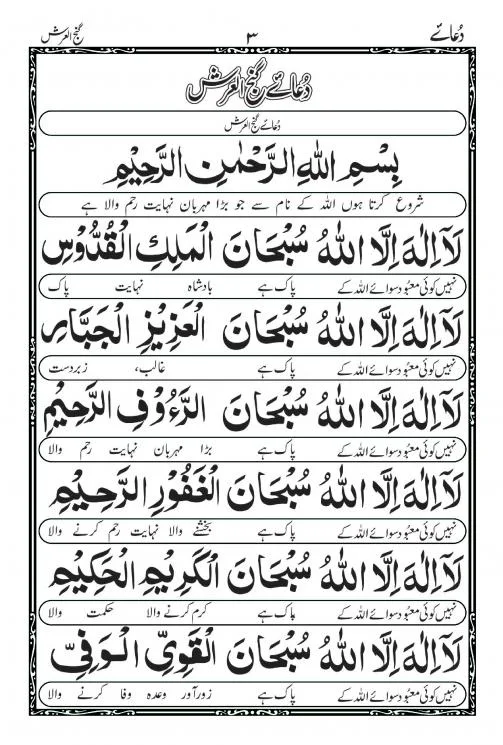 دُعائے ۳ گنج العرش
دُعائے گنج العرش
دُعائے گنج العرش
بِسْمِ اللّٰهِ الرَّحْمٰنِ الرَّحِيْمِ
شروع کرتا ہوں اللہ کے نام سے جو بڑا مہربان نہایت رحم والا ہے
لَآ اِلٰهَ اِلَّا اللّٰهُ سُبْحَانَ الْمَلِكِ الْقُدُّوْسِ
نہیں کوئی معبود سوائے اللہ کے پاک ہے بادشاہ نہایت پاک
لَآ اِلٰهَ اِلَّا اللّٰهُ سُبْحَانَ الْعَزِيْزِ الْجَبَّارِ
نہیں کوئی معبود سوائے اللہ کے پاک ہے غالب، زبردست
لَآ اِلٰهَ اِلَّا اللّٰهُ سُبْحَانَ الرَّءُوْفِ الرَّحِيْمِ
نہیں کوئی معبود سوائے اللہ کے پاک ہے بڑا مہربان نہایت رحم والا
لَآ اِلٰهَ اِلَّا اللّٰهُ سُبْحَانَ الْغَفُوْرِ الرَّحِيْمِ
نہیں کوئی معبود سوائے اللہ کے پاک ہے بخشنے والا نہایت رحم کرنے والا
لَآ اِلٰهَ اِلَّا اللّٰهُ سُبْحَانَ الْكَرِيْمِ الْحَكِيْمِ
نہیں کوئی معبود سوائے اللہ کے پاک ہے کرم کرنے والا حکمت والا
لَآ اِلٰهَ اِلَّا اللّٰهُ سُبْحَانَ الْقَوِيِّ الْوَفِيِّ
نہیں کوئی معبود سوائے اللہ کے پاک ہے زور آور وعدہ وفا کرنے والا